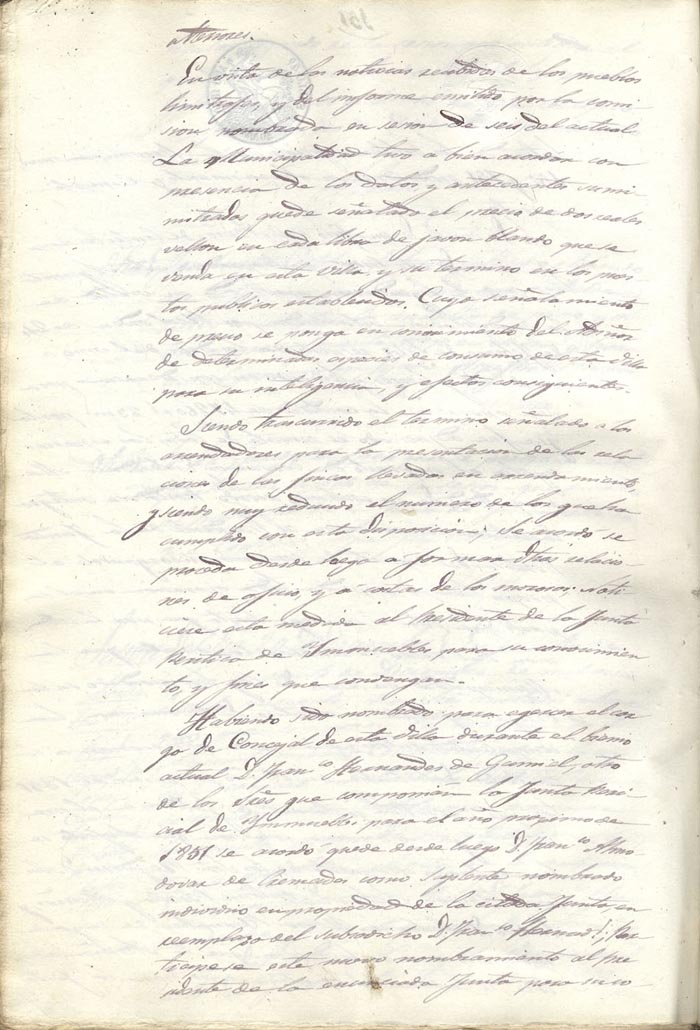 anteriores.
En vista de las noticias recibidas de los pueblos
limitrofes, y del informe emitido por la comi
sion nombrada en sesion de seis del actual
La Municipalidad tuvo a bien acordar con
presencia de los datos y antecedentes sumi
nistrados quede señalado el precio de dos reales
vellon en cada libra de javon blando que se
venda en esta Villa y su termino en los pues
tos publicos establecidos. Cuyo señalamiento
de precio se ponga en conocimiento del
de determinadas especies de consumo de esta Villa
para su inteligencia, y efectos consiguientes.
Siendo trascurrido el termino señalado a los
arrendadores para la presentacion de las rela
ciones de las fincas llevadas en arrendamiento,
y siendo muy reducido el numero de los que han
cumplido con esta disposicion; Se acordó se
proceda desde luego a formar dhas relacio
nes de oficio, y á costas de los morosos. Noti
ciese esta medida al Presidente de la Junta
Pericial de Ymmuebles para su conocimien
to, y fines que convengan.
Habiendo sido nombrado para egercer el car
go de Concejal de esta Villa durante el bienio
actual D. Fran.co Hernandez de Gumiel, otro
de los Sres que componian la Junta Peri
cial de Ymmuebles para el año proximo de
1851 se acordo quede desde luego D. Fran.co Almo
dovar de como suplente nombrado
individuo en propiedad de la citada Junta en
reemplazo del susodicho D. Fran.co Hernand.z; Par
ticipese este nuevo nombramiento al Pre
sidente de la enunciada Junta para su co